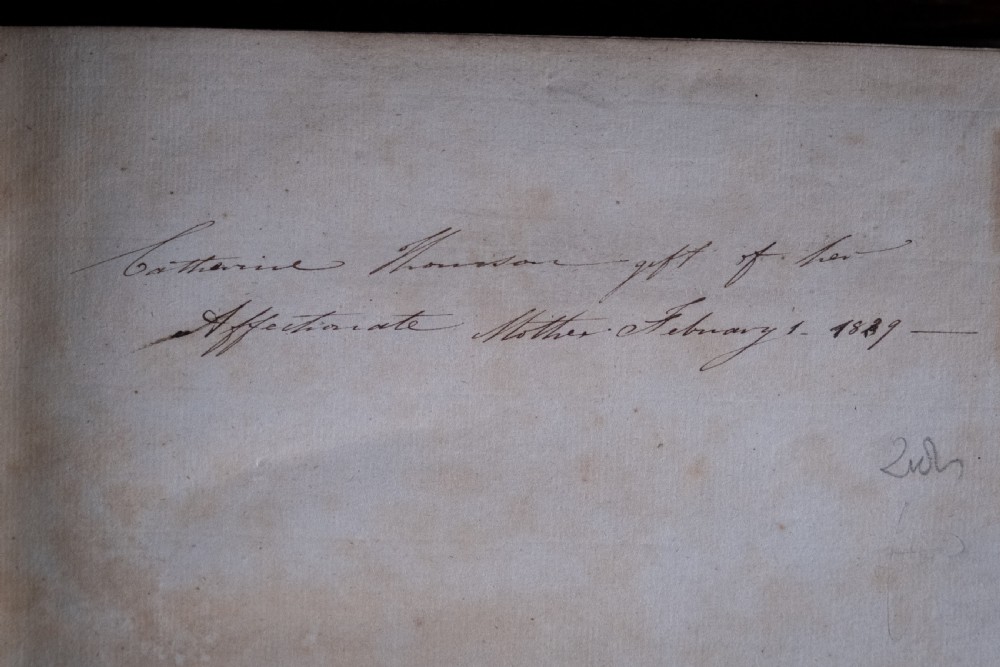 Catherine Thomson gift of her
Affectionate Mother February 1 - 1839 —